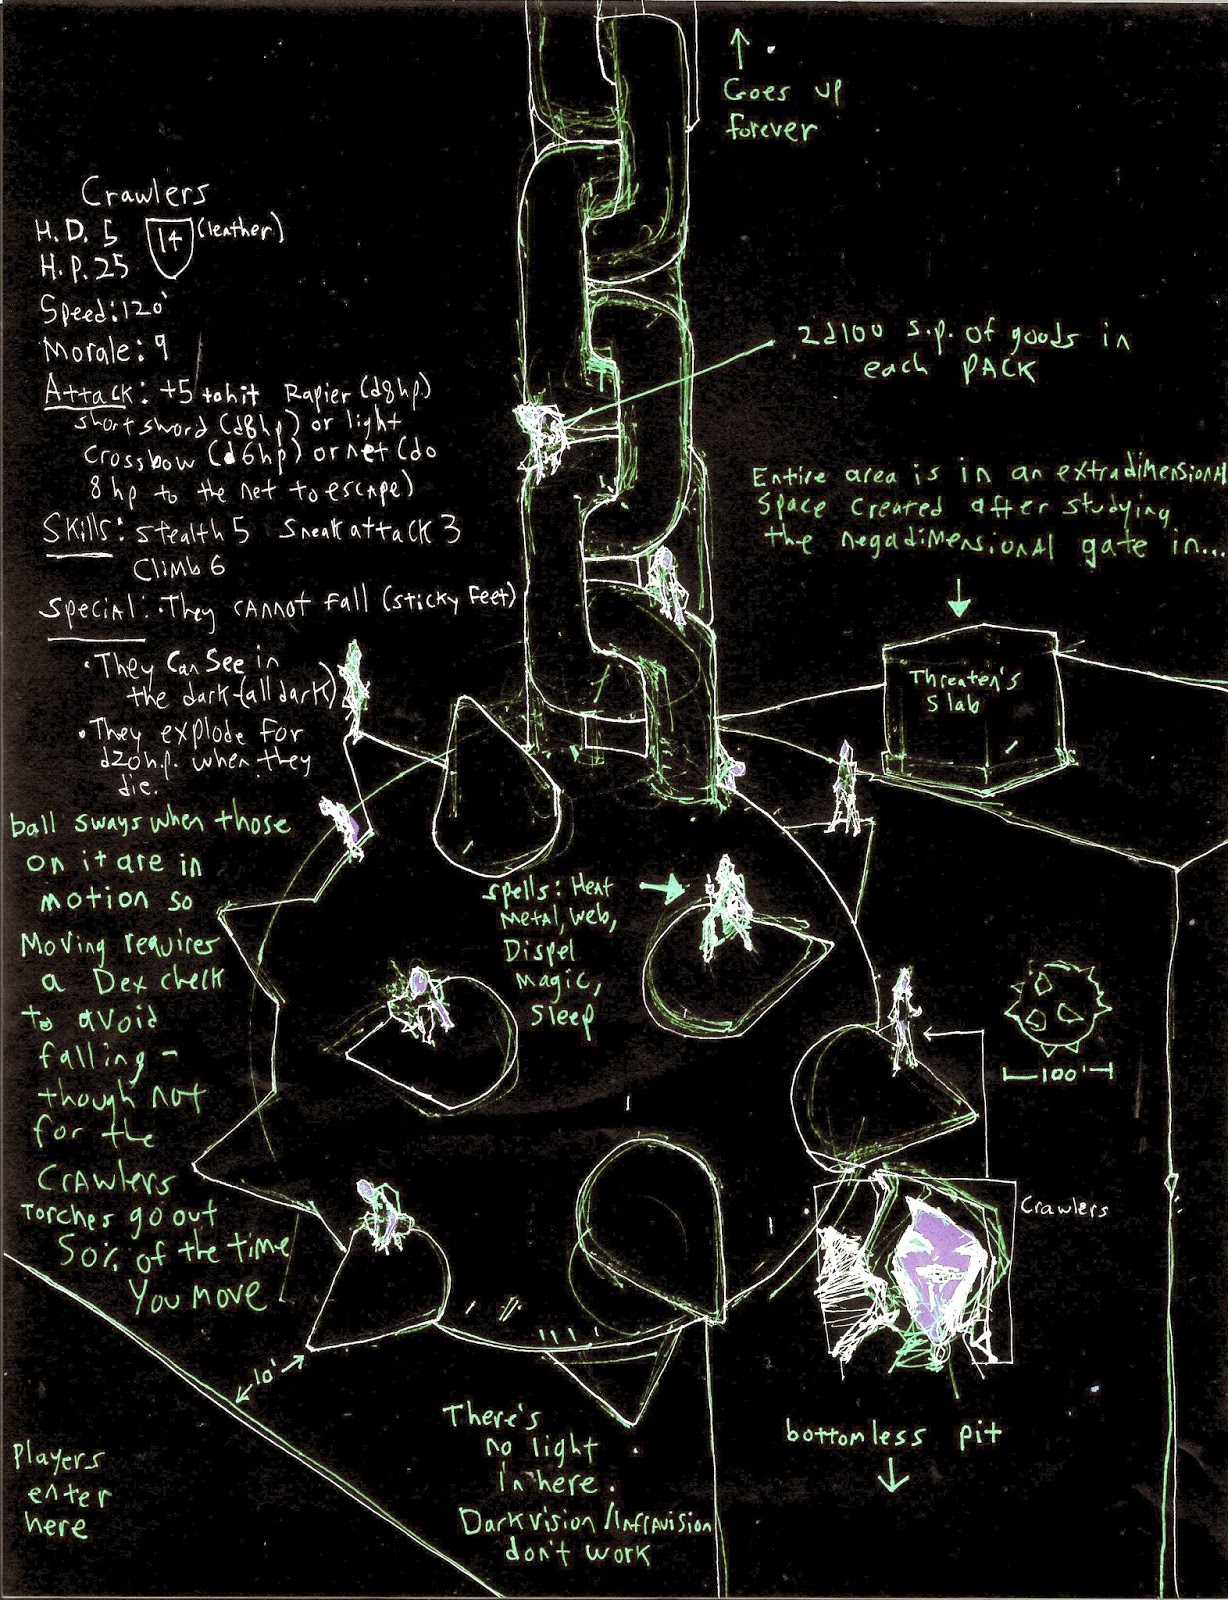 Goes up
forever
Crawlers
H.D. 5 14 (leather)
H.P. 25
Speed: 120'
Morale: 9
Attack: +5 to hit Rapier (d8hp)
short sword (d8hp) or light
crossbow (d6hp) or net (do
8hp to the net to escape)
Skills: Stealth 5 Sneak attack 3
Climb 6
Special: • They cannot fall (sticky feet)
• They can see in
the dark (all dark)
• They explode for
d20h.p. when they
die.
2d100 s.p. of goods in
each PACK
Entire area is in an extradimensional
space created after studying
the negadimensional gate in...
Threaten's
Slab
ball sways when those
on it are in
motion so
Moving requires
a Dex check
to avoid
falling -
though not
for the
Crawlers
Torches go out
50% of the time
You move
spells: Heat
Metal, Web,
Dispel
Magic,
Sleep
100'
Crawlers
10'
Players
enter
here
There's
no light
in here.
Darkvision/Infravision
don't work
bottomless pit